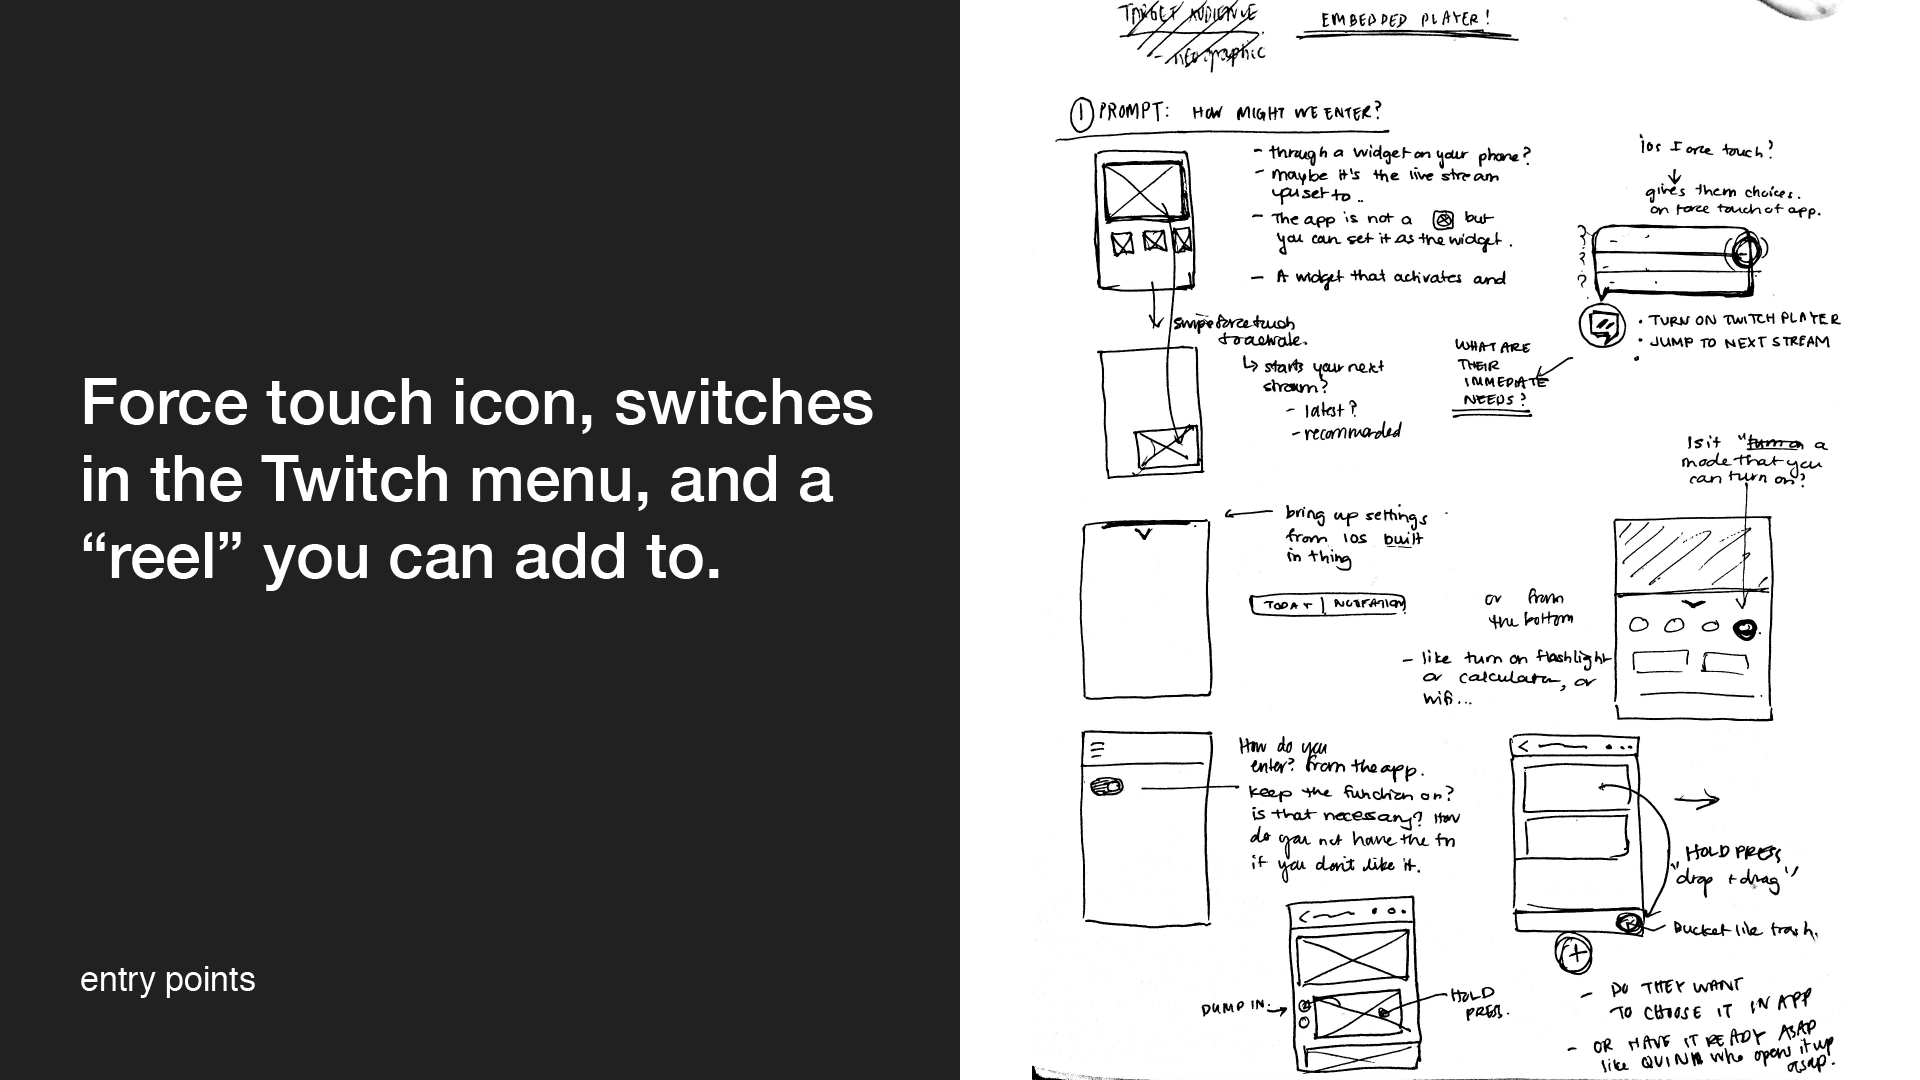 Force touch icon, switches
in the Twitch menu, and a
“reel” you can add to.
entry points
TARGET AUDIENCE
EMBEDDED PLAYER!
1 PROMPT: HOW MIGHT WE ENTER?
- through a widget on your phone?
- maybe it's the live stream
you set to..
- The app is not a but
you can set it as the widget.
- A widget that activates and
swipe force touch
to activate.
↳ starts your next
stream?
- latest?
- recommended
ios Force touch?
↓
gives them choices.
on force touch of app.
?
?
?
• TURN ON TWITCH PLAYER
• JUMP TO NEXT STREAM
•
WHAT ARE
THEIR
IMMEDIATE
NEEDS?
Is it "turn on a
mode that you
can turn on?
bring up settings
from ios built
in thing
TODAY | NOTIFATION
or from
the bottom
- like turn on flashlight
or calculator, or
wifi...
How do you
enter? from the app.
keep the function on?
is that necessary? How
do you not have the fn
if you don't like it.
"HOLD PRESS
drop + drag"
Bucket like trash.
+
DUMP IN:
HOLD
PRESS.
- DO THEY WANT
TO CHOOSE IT IN APP
- OR HAVE IT READY ASAP
like QUINN who opens it up
asap.